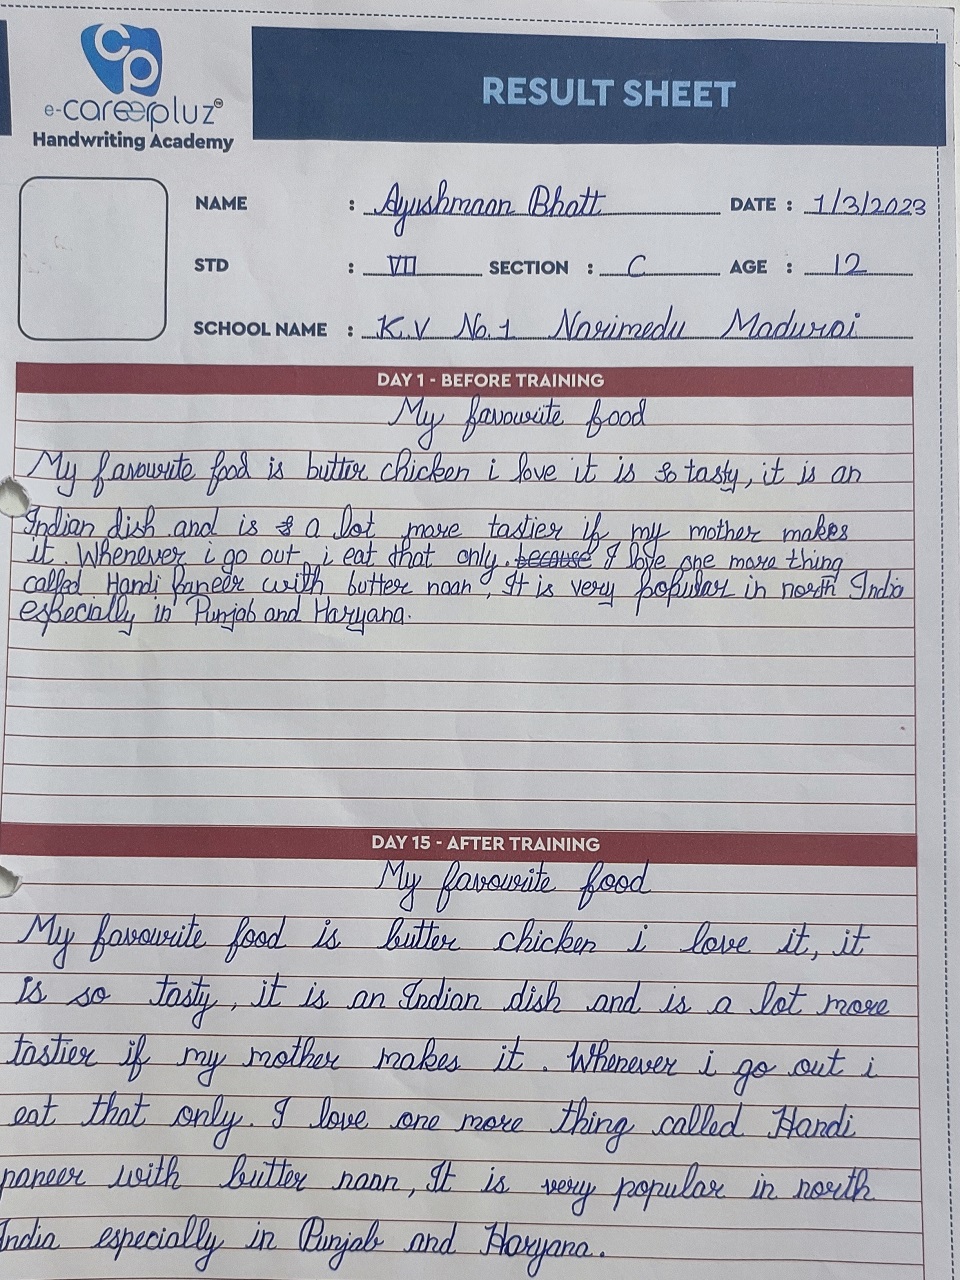 CP
e-careerpluz™
Handwriting Academy
RESULT SHEET
NAME : Ayushmaan Bhatt DATE : 1/3/2023
STD : VII SECTION : C AGE : 12
SCHOOL NAME : K.V No.1 Narimedu Madurai
DAY 1 - BEFORE TRAINING
My favourite food
My favourite food is butter chicken i love it is so tasty, it is an
Indian dish and is a lot more tastier if my mother makes
it. Whenever i go out i eat that only. because I love one more thing
called Handi Paneer with butter naan, It is very popular in north India
especially in Punjab and Haryana.
DAY 15 - AFTER TRAINING
My favourite food
My favourite food is butter chicken i love it, it
is so tasty, it is an Indian dish and is a lot more
tastier if my mother makes it. Whenever i go out i
eat that only. I love one more thing called Handi
paneer with butter naan, It is very popular in north
India especially in Punjab and Haryana.